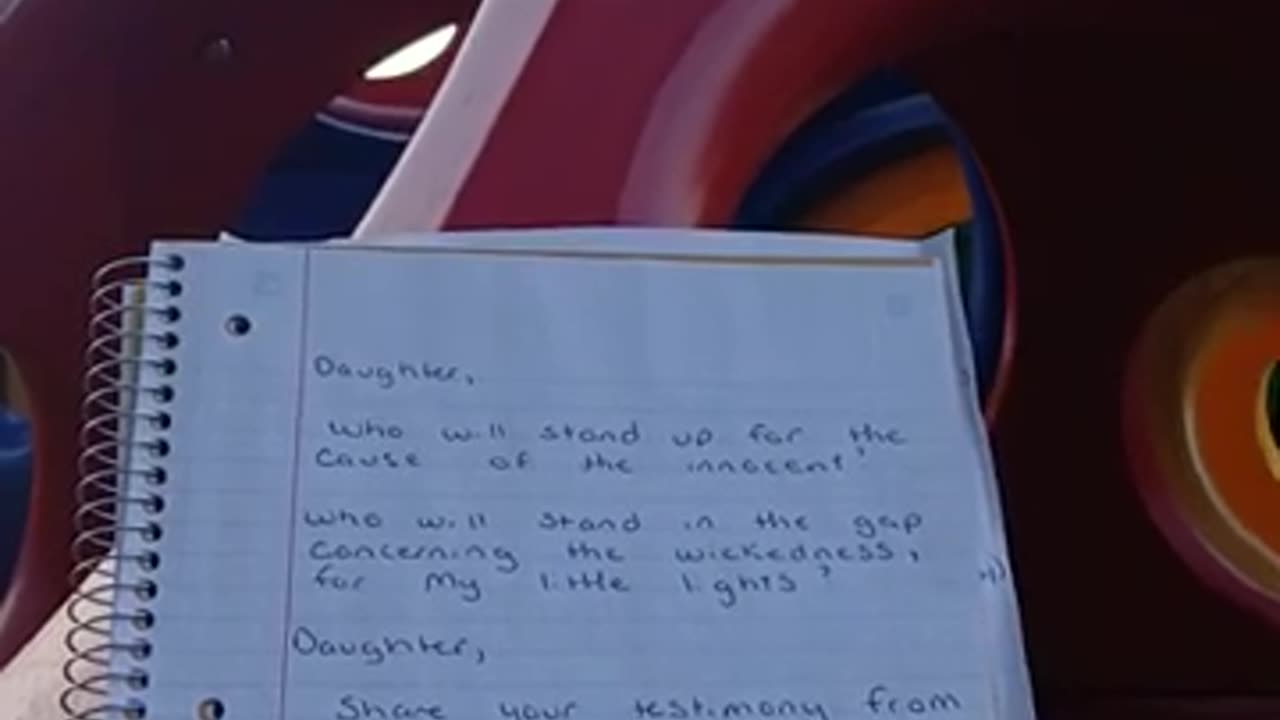 Daughter,
who will stand up for the
cause of the innocent?
who will stand in the gap
concerning the wickedness,
for My little lights?
Daughter,
Share your testimony from